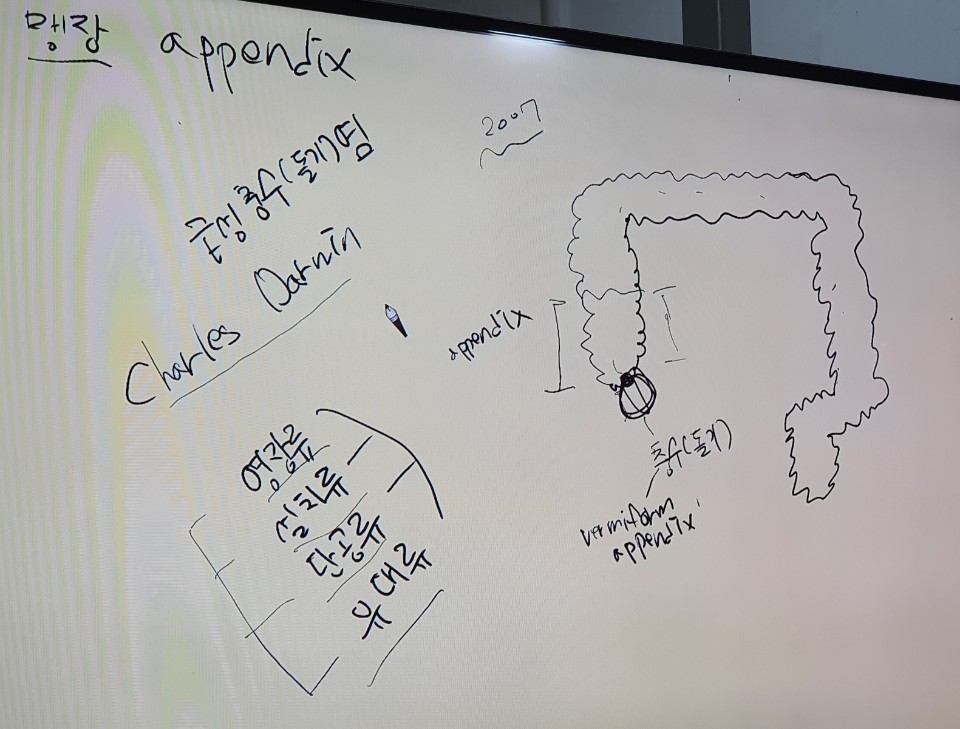 맹장 appendix
급성충수(돌기)염
Charles Darwin
영장류
설치류
단공류
유대류
2007
appendix
충수(돌기)
vermiform
appendix